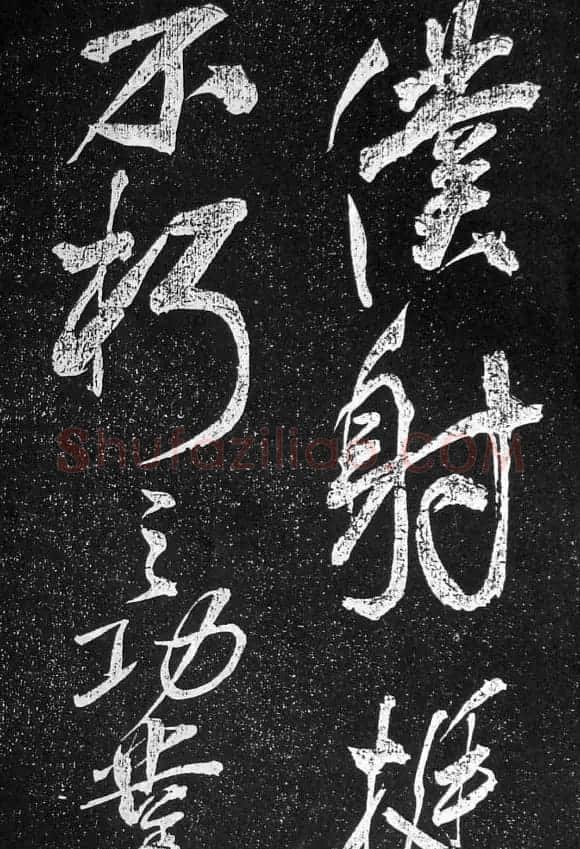 僕射挺
不朽之功業
Shufaziliao.COM